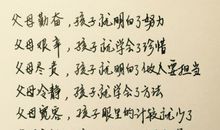 父母勤奋，孩子就明白了努力
父母艰辛，孩子就学会了珍惜
父母尽责，孩子就明白了做人要担当
父母冷静，孩子就学会了方法
父母宽容，孩子眼里的计较就少了